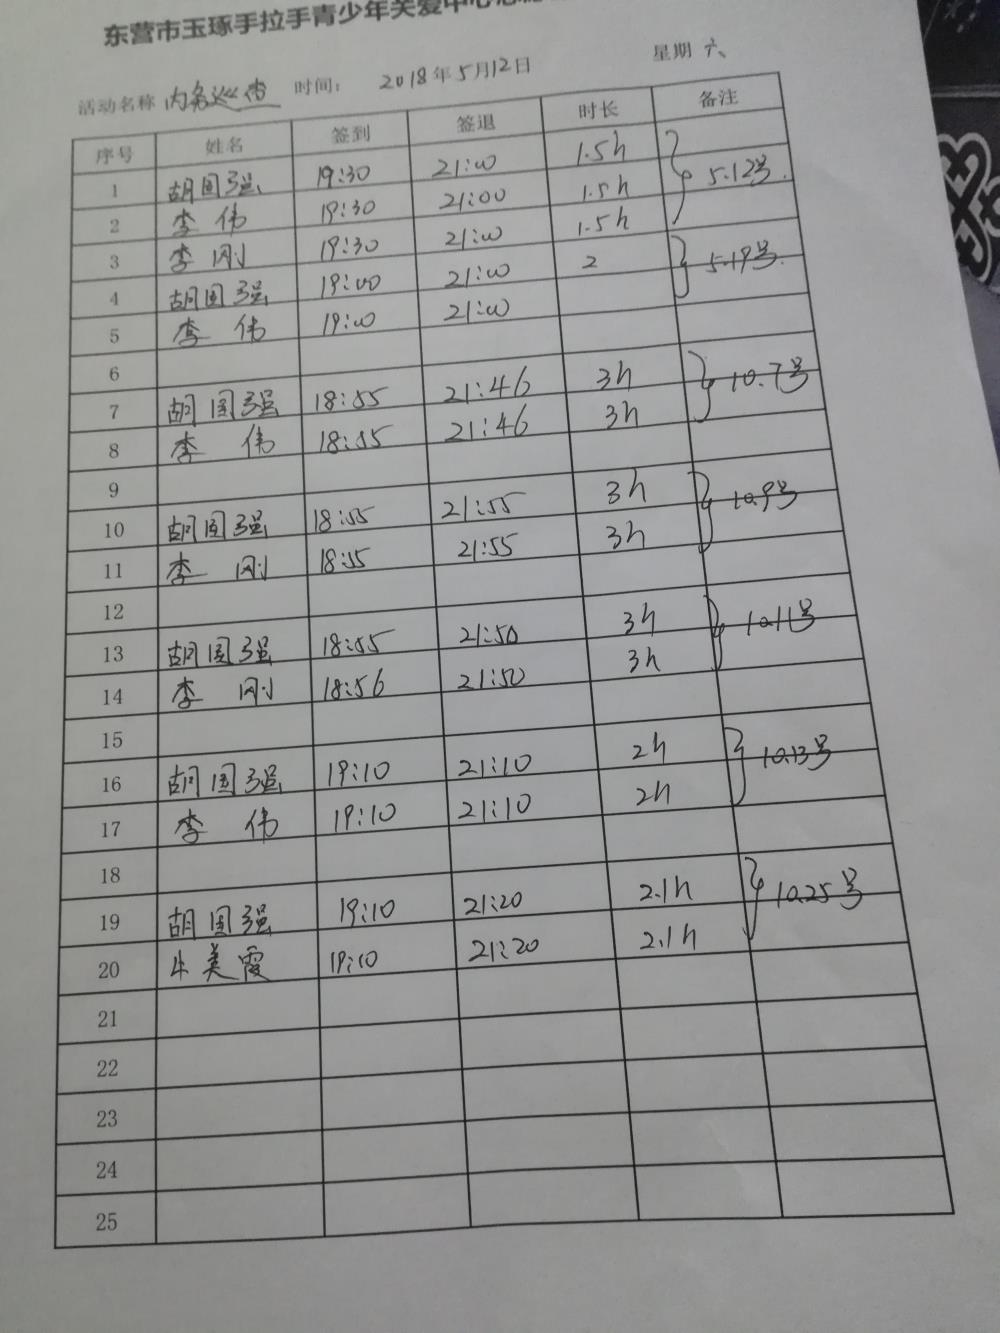 东营市玉琢手拉手青少年关爱中心志愿
活动名称 内务巡查 时间： 2018年5月12日 星期 六
序号 姓名 签到 签退 时长 备注
1 胡国强 19:30 21:00 1.5h 5.12号
2 李伟 19:30 21:00 1.5h
3 李刚 19:30 21:00 1.5h
4 胡国强 19:00 21:00 2 5.19号
5 李伟 19:00 21:00
6
7 胡国强 18:55 21:46 3h 10.7号
8 李伟 18:55 21:46 3h
9
10 胡国强 18:55 21:55 3h 10.9号
11 李刚 18:55 21:55 3h
12
13 胡国强 18:55 21:50 3h 10.11号
14 李刚 18:56 21:50 3h
15
16 胡国强 19:10 21:10 2h 10.13号
17 李伟 19:10 21:10 2h
18
19 胡国强 19:10 21:20 2.1h 10.25号
20 牛美霞 19:10 21:20 2.1h
21
22
23
24
25